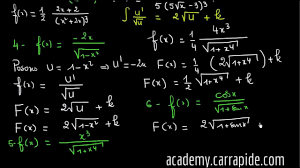 f(x) = 1/2 (2x+2)/(x²+2x)³
∫ u'/√u = 2√u + k
5(5√x-3)³
4- f(x) = -2x/√(1-x²)
f(x) = 1/4 4x³/√(1+x⁴)
Posons u = 1-x² ⇒ u' = -2x
F(x) = 1/4 (2√(1+x⁴)) + k
f(x) = u'/√u
F(x) = 1/2 √(1+x⁴) + k
F(x) = 2√u + k
6- f(x) = cosx/√(1+sinx)
F(x) = 2√(1-x²) + k
F(x) = 2√(1+sinx)
5- f(x) = x³/√(1+x⁴)
academy.carrapide.com